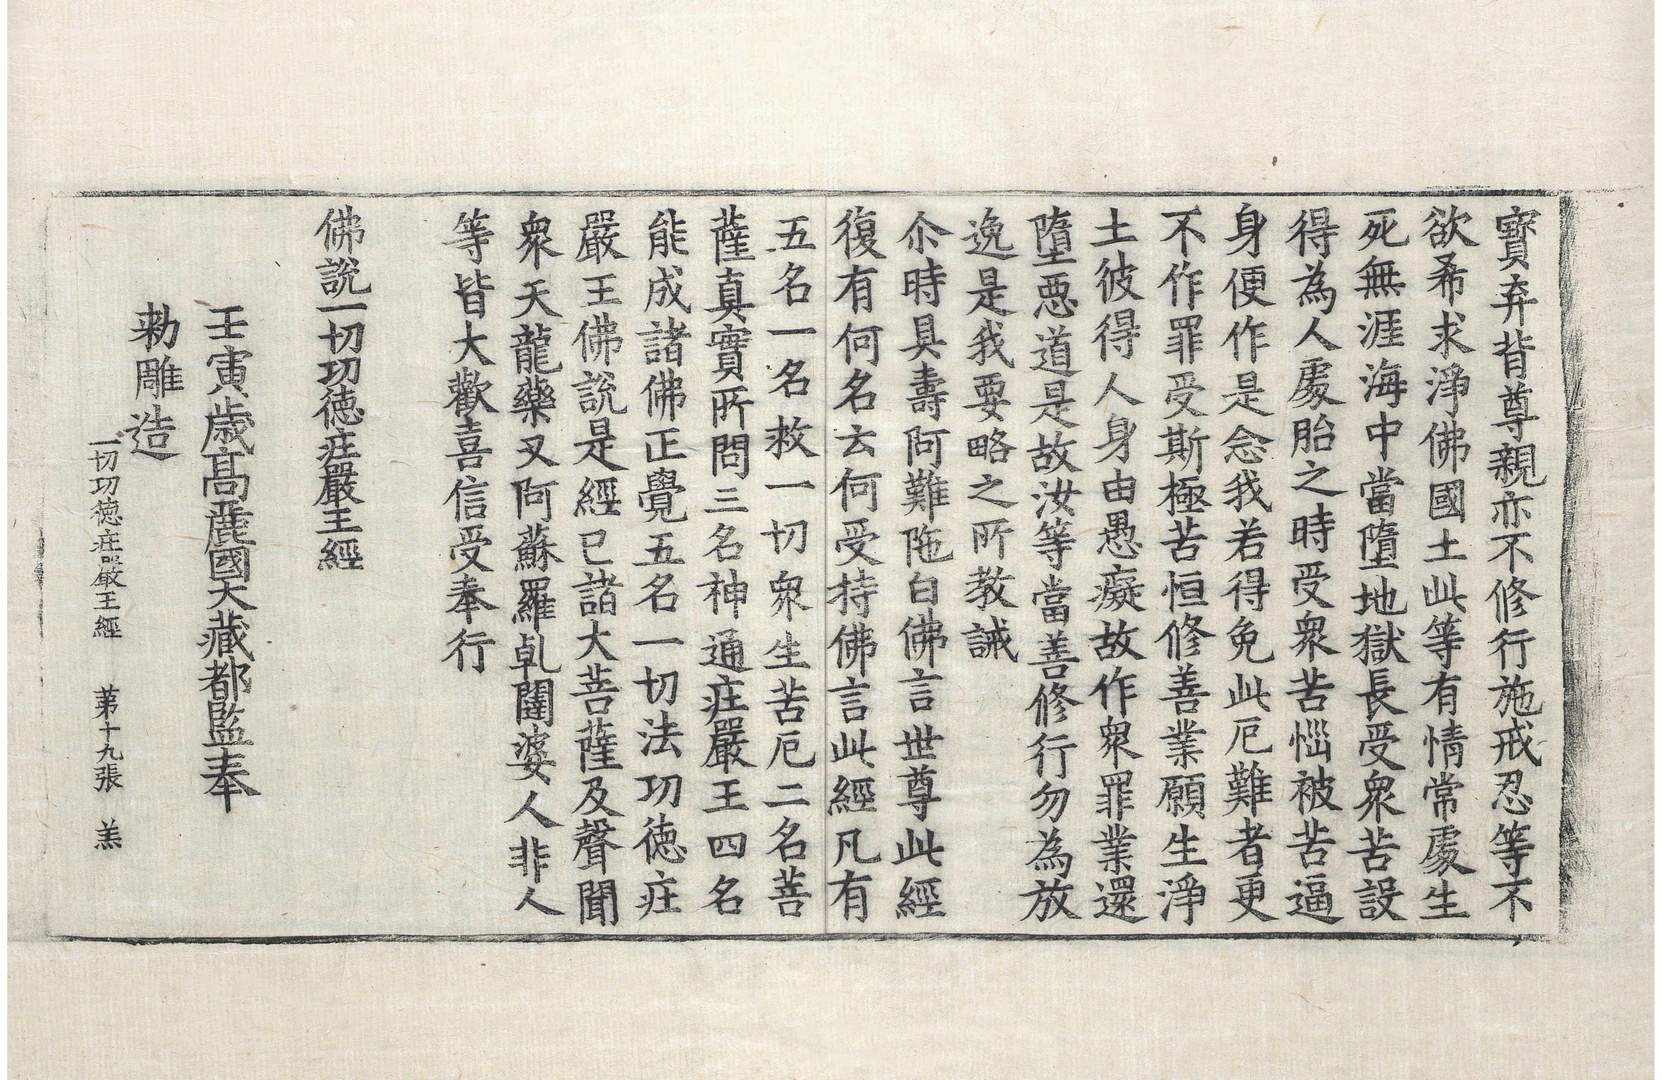 寶弃背尊親亦不修行施戒忍等不
欲希求淨佛國土此等有情常處生
死無涯海中當墮地獄長受衆苦設
得為人處胎之時受衆苦惱被苦逼
身便作是念我若得免此厄難者更
不作罪受斯極苦恒修善業願生淨
土彼得人身由愚癡故作衆罪業還
墮惡道是故汝等當善修行勿為放
逸是我要略之所教誡
尒時具壽阿難陁白佛言世尊此經
復有何名云何受持佛言此經凡有
五名一名救一切衆生苦厄二名菩
薩真實所問三名神通庄嚴王四名
能成諸佛正覺五名一切法功徳庄
嚴王佛說是經已諸大菩薩及聲聞
衆天龍藥叉阿蘇羅乹闥婆人非人
等皆大歡喜信受奉行
佛說一切功徳庄嚴王經
壬寅歲髙麗國大藏都監奉
勑雕造
一切功徳庄嚴王經 苐十九張 羔